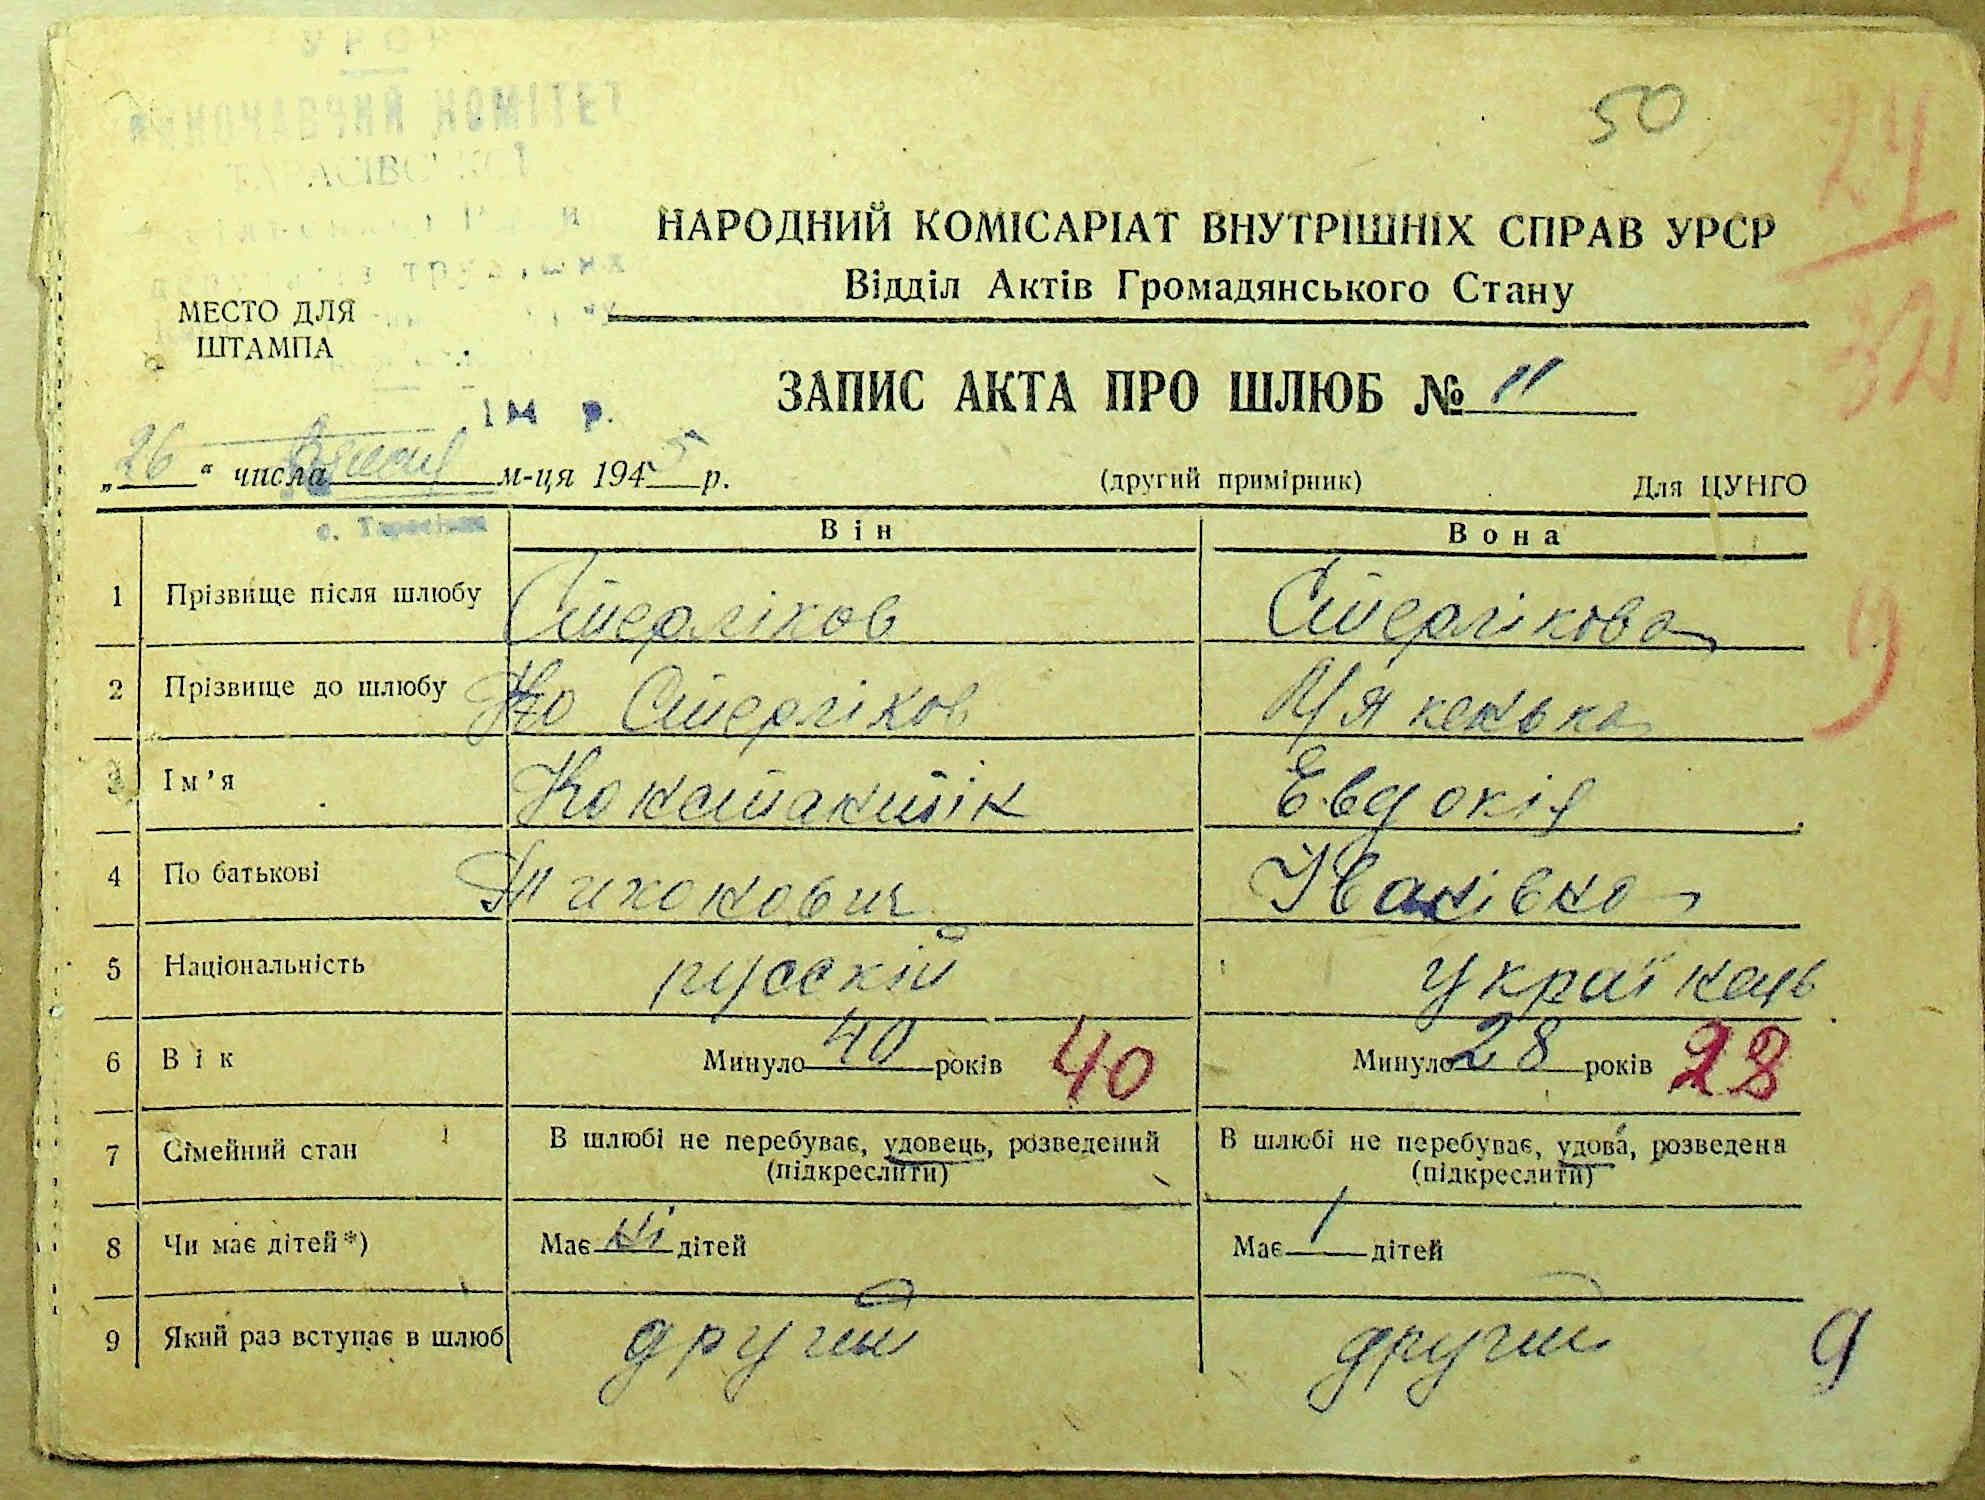 УРСР
ВИКОНАВЧИЙ КОМІТЕТ
ТАРАСІВСЬКОЇ
50
24
32
НАРОДНИЙ КОМІСАРІАТ ВНУТРІШНІХ СПРАВ УРСР
Відділ Актів Громадянського Стану
МЕСТО ДЛЯ
ШТАМПА
ЗАПИС АКТА ПРО ШЛЮБ № 11
194 р.
„26“ числа м-ця 1945 р.
(другий примірник) Для ЦУНГО
с. Тарасівка
Він Вона
1 Прізвище після шлюбу Стерліков Стерлікова
2 Прізвище до шлюбу Стерліков
9
3 Ім’я Константін Евдокія
4 По батькові Тихонович Іванівна
5 Національність русскій українець
6 Вік Минуло 40 років 40 Минуло 28 років 28
7 Сімейний стан В шлюбі не перебуває, удовець, розведений В шлюбі не перебуває, удова, розведена
(підкреслити) (підкреслити)
8 Чи має дітей*) Має ні дітей Має 1 дітей
9 Який раз вступає в шлюб другий другий 9